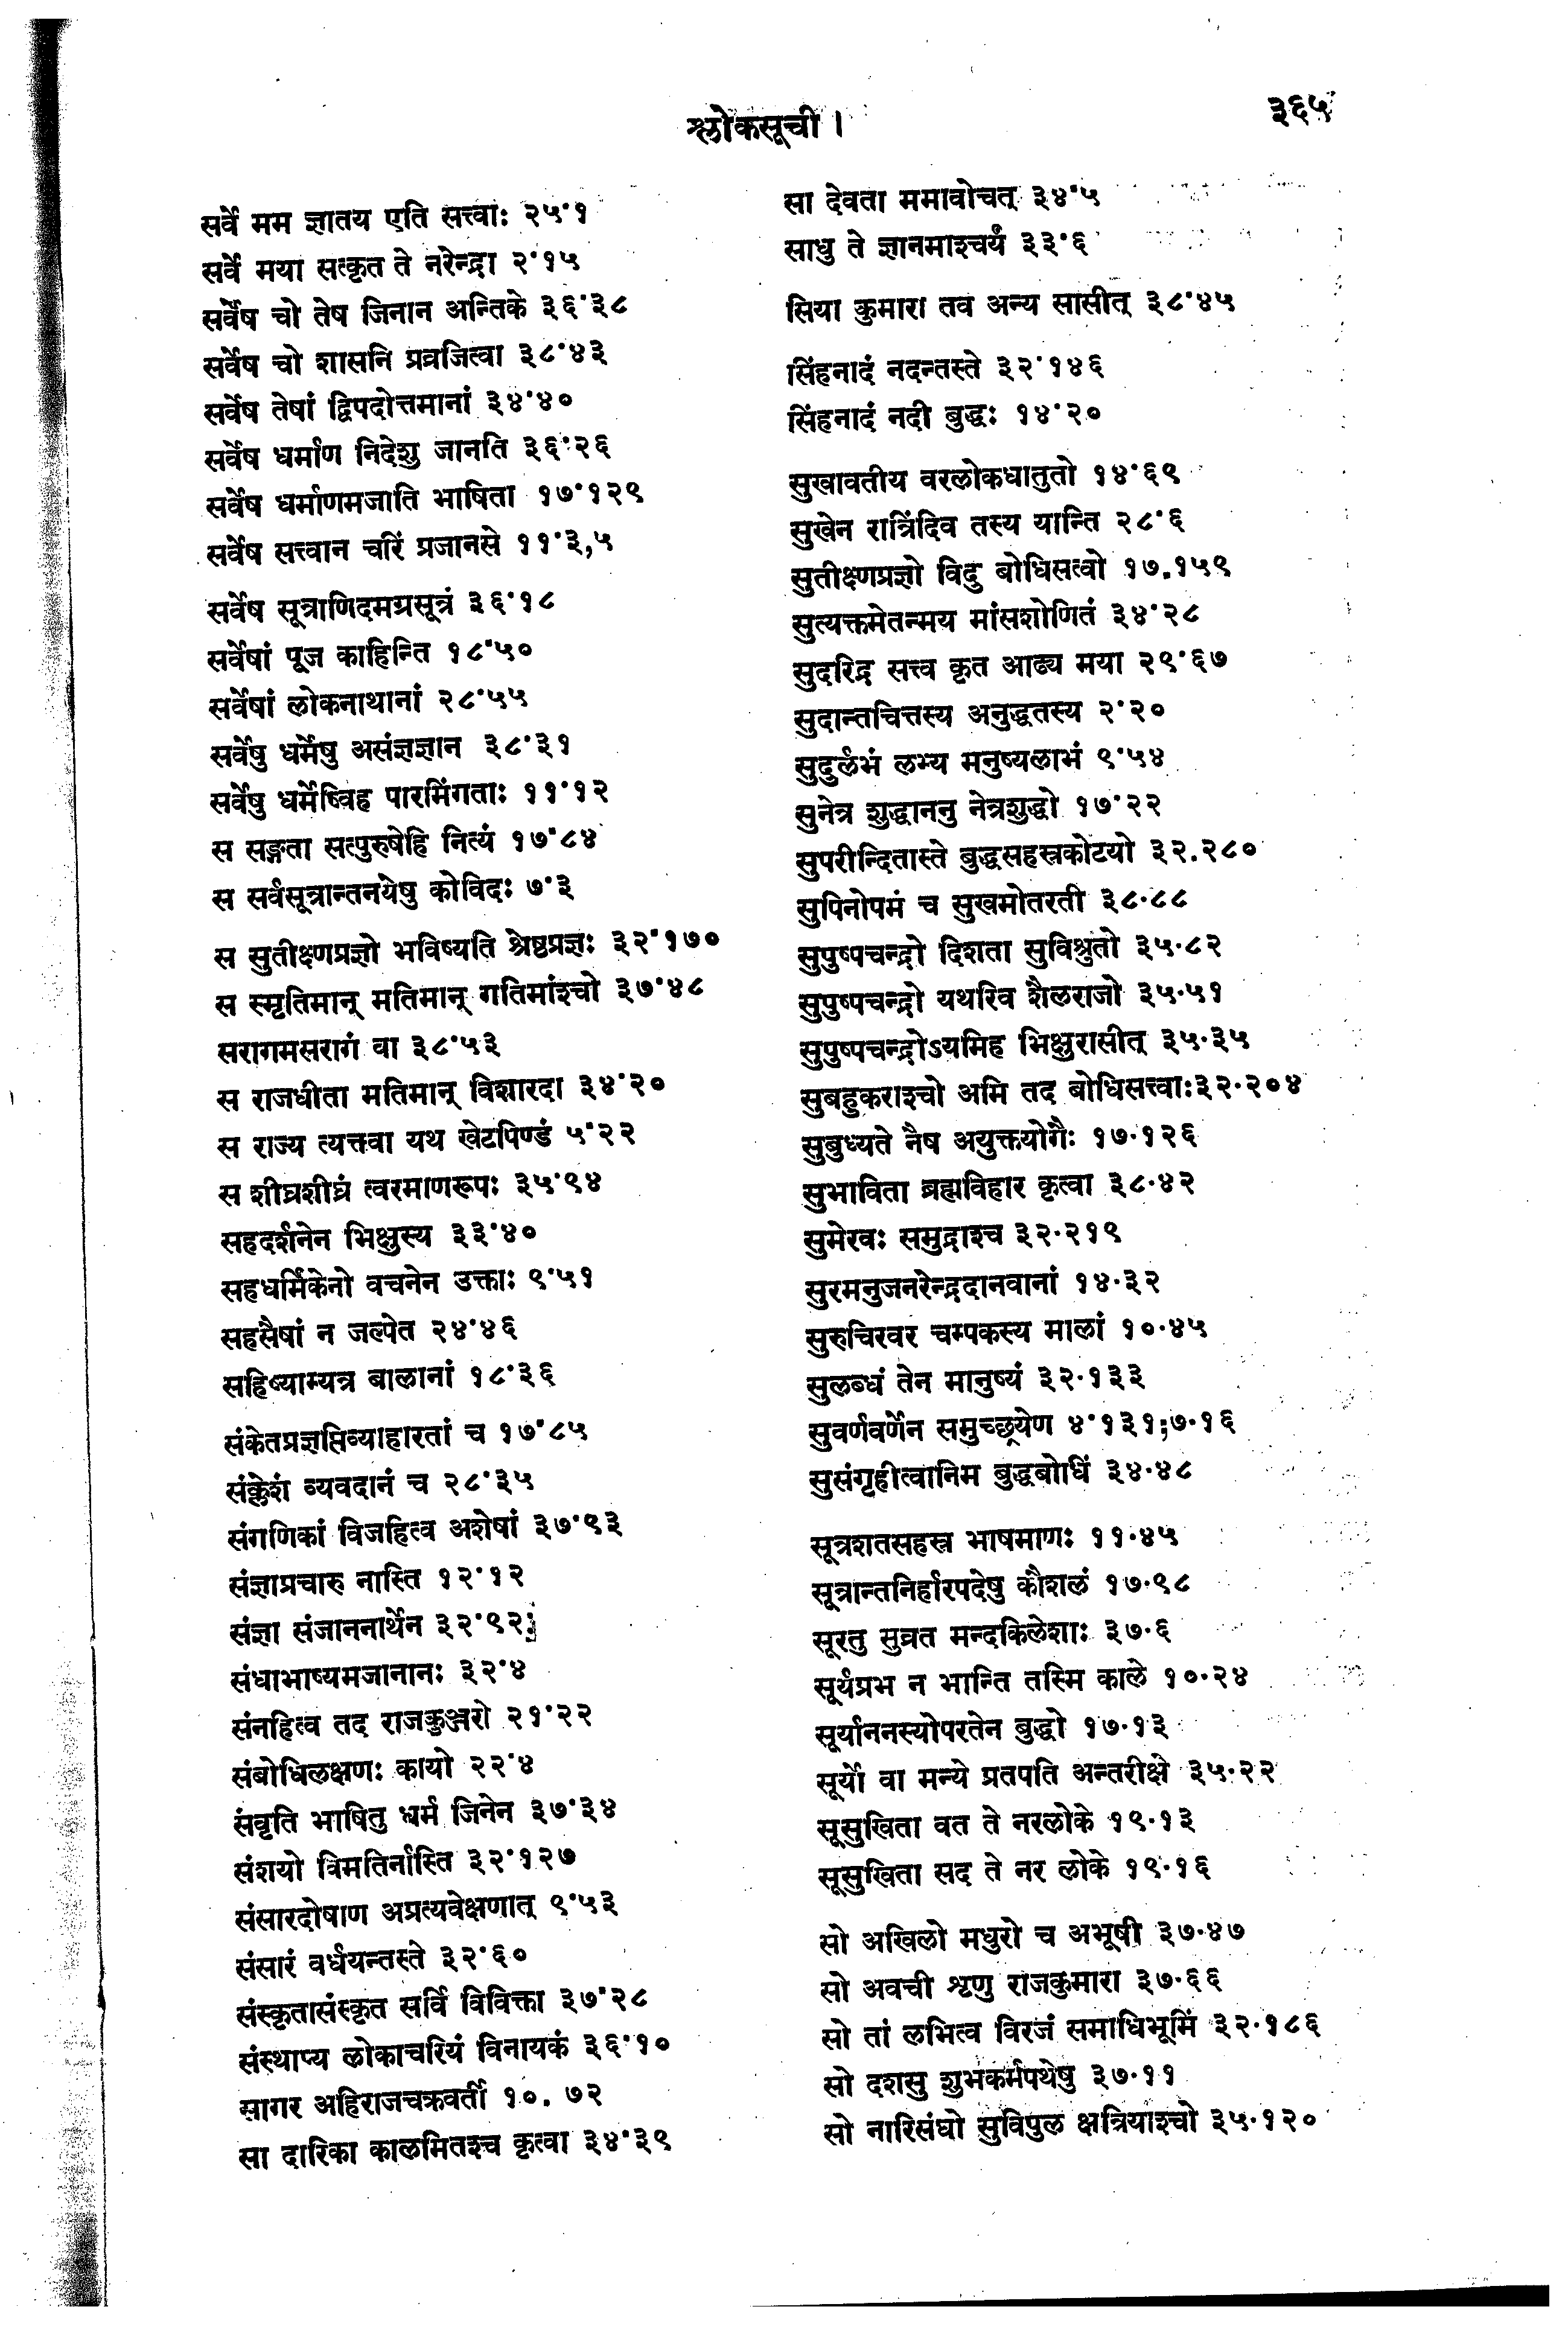 श्लोकसूची ।
३६५
सर्वे मम ज्ञातय एति सत्त्वाः २५·१
सर्वे मया सत्कृत ते नरेन्द्रा २·१५
सर्वेष चो तेष जिनान अन्तिके ३६·३८
सर्वेष चो शासनि प्रव्रजित्वा ३८·४३
सर्वेष तेषां द्विपदोत्तमानां ३४·४०
सर्वेष धर्माण निदेशु जानति ३६·२६
सर्वेष धर्माणमजाति भाषिता १७·१२९
सर्वेष सत्त्वान चरिं प्रजानसे ११·३,५
सर्वेष सूत्राणिदमग्रसूत्रं ३६·१८
सर्वेषां पूज काहिन्ति १८·५०
सर्वेषां लोकनाथानां २८·५५
सर्वेषु धर्मेषु असंज्ञज्ञान ३८·३१
सर्वेषु धर्मेष्विह पारमिंगताः ११·१२
स सङ्गता सत्पुरुषेहि नित्यं १७·८४
स सर्वसूत्रान्तनयेषु कोविदः ७·३
स सुतीक्ष्णप्रज्ञो भविष्यति श्रेष्ठप्रज्ञः ३२·१७०
स स्मृतिमान् मतिमान् गतिमांश्चो ३७·४८
सरागमसरागं वा ३८·५३
स राजधीता मतिमान् विशारदा ३४·२०
स राज्य त्यत्तवा यथ खेटपिण्डं ५·२२
स शीघ्रशीघ्रं त्वरमाणरूपः ३५·९४
सहदर्शनेन भिक्षुस्य ३३·४०
सहधर्मिकेनो वचनेन उक्ताः ९·५१
सहसैषां न जल्पेत २४·४६
सहिष्याम्यत्र बालानां १८·३६
संकेतप्रज्ञप्तिव्याहारतां च १७·८५
संक्लेशं व्यवदानं च २८·३५
संगणिकां विजहित्व अशेषां ३७·९३
संज्ञाप्रचारु नास्ति १२·१२
संज्ञा संजाननार्थेन ३२·९२;
संधाभाष्यमजानानः ३२·४
संनहित्व तद राजकुञ्जरो २१·२२
संबोधिलक्षणः कायो २२·४
संवृति भाषितु धर्म जिनेन ३७·३४
संशयो विमतिर्नास्ति ३२·१२७
संसारदोषाण अप्रत्यवेक्षणात् ९·५३
संसारं वर्धयन्तस्ते ३२·६०
संस्कृतासंस्कृत सर्वि विविक्ता ३७·२८
संस्थाप्य लोकाचरियं विनायकं ३६·१०
सागर अहिराजचक्रवर्ती १०. ७२
सा दारिका कालमितश्च कृत्वा ३४·३९
सा देवता ममावोचत् ३४·५
साधु ते ज्ञानमाश्चर्यं ३३·६
सिया कुमारा तव अन्य सासीत् ३८·४५
सिंहनादं नदन्तस्ते ३२·१४६
सिंहनादं नदी बुद्धः १४·२०
सुखावतीय वरलोकधातुतो १४·६९
सुखेन रात्रिंदिव तस्य यान्ति २८·६
सुतीक्ष्णप्रज्ञो विदु बोधिसत्वो १७.१५९
सुत्यक्तमेतन्मय मांसशोणितं ३४·२८
सुदरिद्र सत्त्व कृत आढ्य मया २९·६७
सुदान्तचित्तस्य अनुद्धतस्य २·२०
सुदुर्लभं लभ्य मनुष्यलाभं ९·५४
सुनेत्र शुद्धाननु नेत्रशुद्धो १७·२२
सुपरीन्दितास्ते बुद्धसहस्रकोटयो ३२.२८०
सुपिनोपमं च सुखमोतरती ३८·८८
सुपुष्पचन्द्रो दिशता सुविश्रुतो ३५·८२
सुपुष्पचन्द्रो यथरिव शैलराजो ३५·५१
सुपुष्पचन्द्रोऽयमिह भिक्षुरासीत् ३५·३५
सुबहुकराश्चो अमि तद बोधिसत्त्वाः३२·२०४
सुबुध्यते नैष अयुक्तयोगैः १७·१२६
सुभाविता ब्रह्मविहार कृत्वा ३८·४२
सुमेरवः समुद्राश्च ३२·२१९
सुरमनुजनरेन्द्रदानवानां १४·३२
सुरुचिरवर चम्पकस्य मालां १०·४५
सुलब्धं तेन मानुष्यं ३२·१३३
सुवर्णवर्णेन समुच्छ्रयेण ४·१३१;७·१६
सुसंगृहीत्वानिम बुद्धबोधिं ३४·४८
सूत्रशतसहस्र भाषमाणः ११·४५
सूत्रान्तनिर्हारपदेषु कौशलं १७·९८
सूरतु सुव्रत मन्दकिलेशाः ३७·६
सूर्यप्रभ न भान्ति तस्मि काले १०·२४
सूर्याननस्योपरतेन बुद्धो १७·१३
सूर्यो वा मन्ये प्रतपति अन्तरीक्षे ३५·२२
सूसुखिता वत ते नरलोके १९·१३
सूसुखिता सद ते नर लोके १९·१६
सो अखिलो मधुरो च अभूषी ३७·४७
सो अवची शृणु राजकुमारा ३७·६६
सो तां लभित्व विरजं समाधिभूमिं ३२·१८६
सो दशसु शुभकर्मपथेषु ३७·११
सो नारिसंघो सुविपुल क्षत्रियाश्चो ३५·१२०